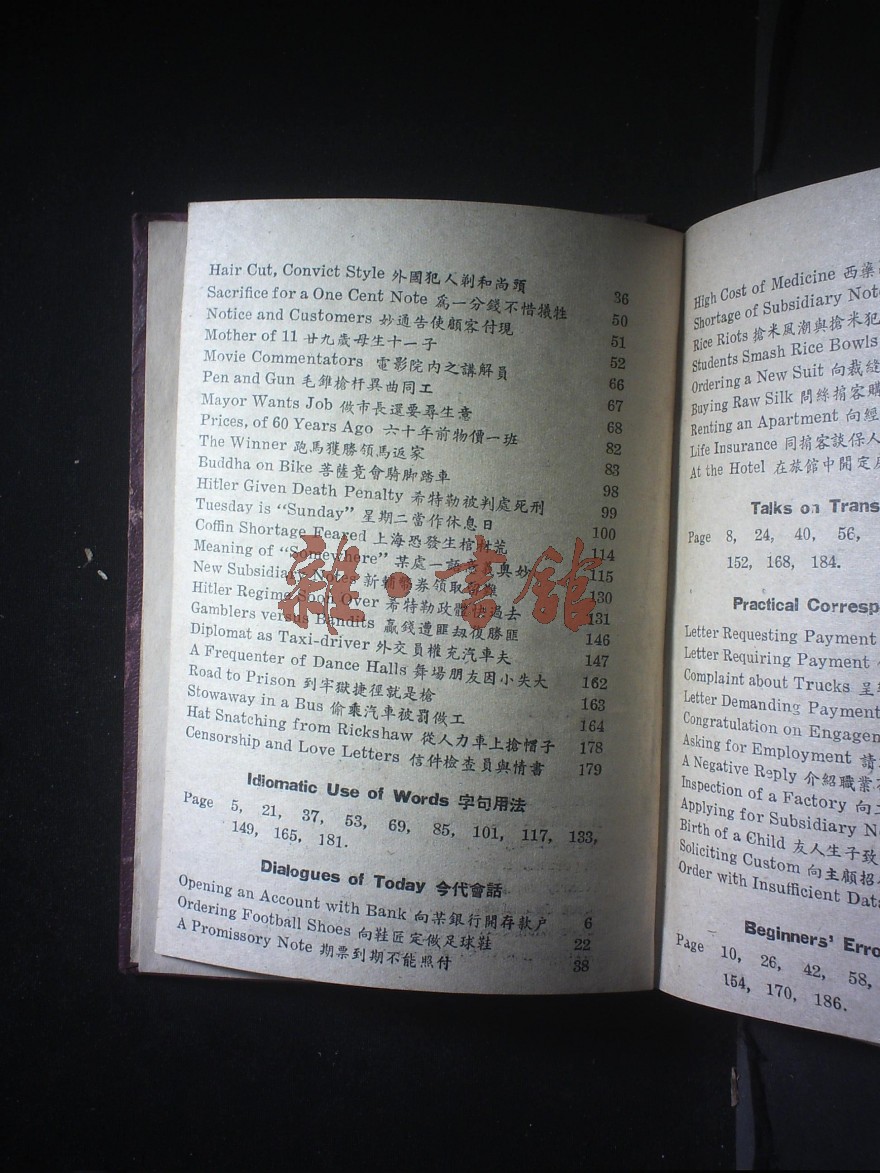 Hair Cut, Convict Style 外國犯人剃和尚頭 36
Sacrifice for a One Cent Note 爲一分錢不惜犧牲 50
Notice and Customers 妙通告使顧客付現 51
Mother of 11 廿九歲母生十一子 52
Movie Commentators 電影院內之講解員 66
Pen and Gun 毛錐槍杆異曲同工 67
Mayor Wants Job 做市長還要尋生意 68
Prices, of 60 Years Ago 六十年前物價一班 82
The Winner 跑馬獲勝領馬返家 83
Buddha on Bike 菩薩竟會騎脚踏車 98
Hitler Given Death Penalty 希特勒被判處死刑 99
Tuesday is “Sunday” 星期二當作休息日 100
Coffin Shortage Feared 上海恐發生棺材荒 114
Meaning of “Somewhere” 某處一語 奧妙 115
New Subsidiary Notes 新輔幣券領取 130
Hitler Regime Soon Over 希特勒政體 過去 131
Gamblers versus Bandits 贏錢遭匪刼復勝匪 146
Diplomat as Taxi-driver 外交員權充汽車夫 147
A Frequenter of Dance Halls 舞場朋友因小失大 162
Road to Prison 到牢獄捷徑就是槍 163
Stowaway in a Bus 偷乘汽車被罰做工 164
Hat Snatching from Rickshaw 從人力車上搶帽子 178
Censorship and Love Letters 信件檢查員與情書 179
Idiomatic Use of Words 字句用法
Page 5, 21, 37, 53, 69, 85, 101, 117, 133,
149, 165, 181.
Dialogues of Today 今代會話
Opening an Account with Bank 向某銀行開存款户 6
Ordering Football Shoes 向鞋匠定做足球鞋 22
A Promissory Note 期票到期不能照付 38
雜·書館
High Cost of Medicine 西藥
Shortage of Subsidiary Note
Rice Riots 搶米風潮與搶米犯
Students Smash Rice Bowls
Ordering a New Suit 向裁縫
Buying Raw Silk 問絲掮客購
Renting an Apartment 向經
Life Insurance 同掮客談保人
At the Hotel 在旅館中開定
Talks on Trans
Page 8, 24, 40, 56,
152, 168, 184.
Practical Corresp
Letter Requesting Payment
Letter Requiring Payment
Complaint about Trucks 呈
Letter Demanding Payment
Congratulation on Engagem
Asking for Employment 請
A Negative Reply 介紹職業
Inspection of a Factory 向
Applying for Subsidiary No
Birth of a Child 友人生子致
Soliciting Custom 向主顧招
Order with Insufficient Data
Beginners' Erro
Page 10, 26, 42, 58,
154, 170, 186.